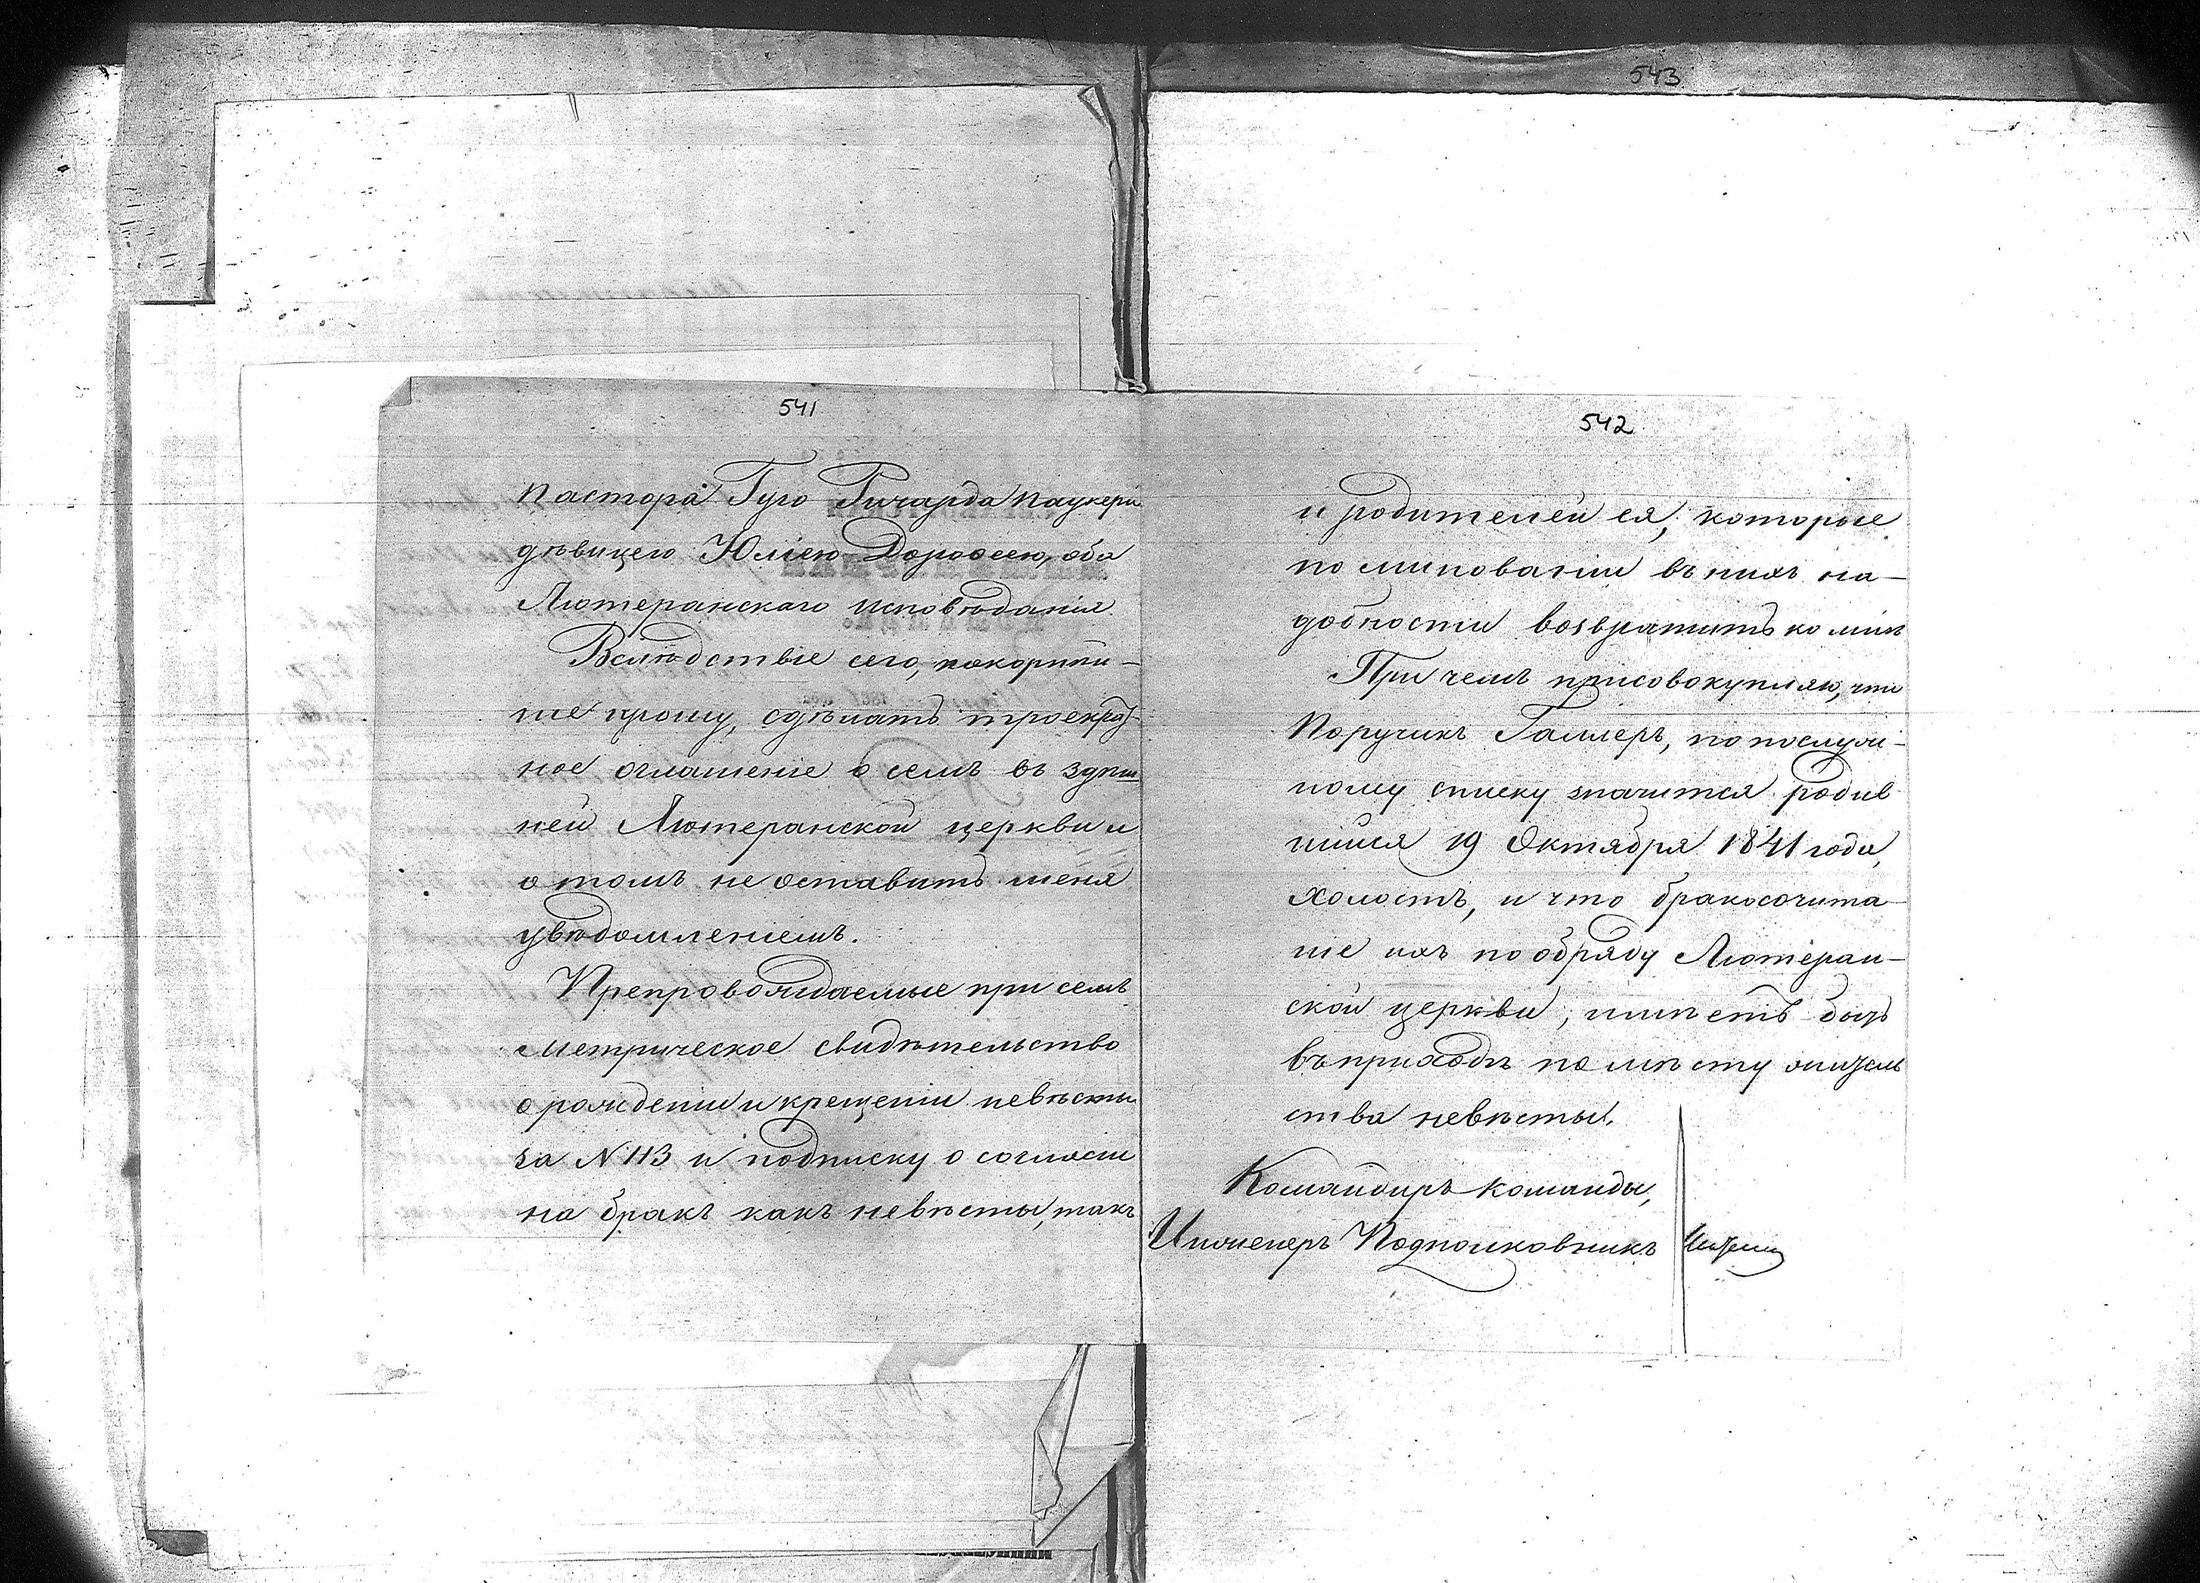 543
541
пастора Гуго Ричарда Паукера
дѣвицею Юліею Дорофеею, оба
Лютеранскаго исповѣданія.
Вслѣдствіе сего, покорнѣй-
ше прошу, сдѣлать троекрат-
ное оглашеніе о семъ въ здѣш
ней Лютеранской церкви и
о томъ не оставить меня
увѣдомленіемъ.
Препровождаемые при семъ
метрическое свидѣтельство
о рожденіи и крещеніи невѣсты
за N 113 и подписку о согласіи
на бракъ какъ невѣсты, такъ
542
и родителей ея, которые
по минованіи въ нихъ на-
добности возвратить ко мнѣ
При чемъ присовокупляю, что
Поручикъ Галлеръ, по послуж-
ному списку значится родив
шимся 19 Октября 1841 года,
холостъ, и что бракосочита-
ніе ихъ по обряду Лютеран-
ской церкви, имѣетъ быть
въ приходѣ по мѣсту житель
ства невѣсты.
Командиръ команды,
Инженеръ Подполковникъ